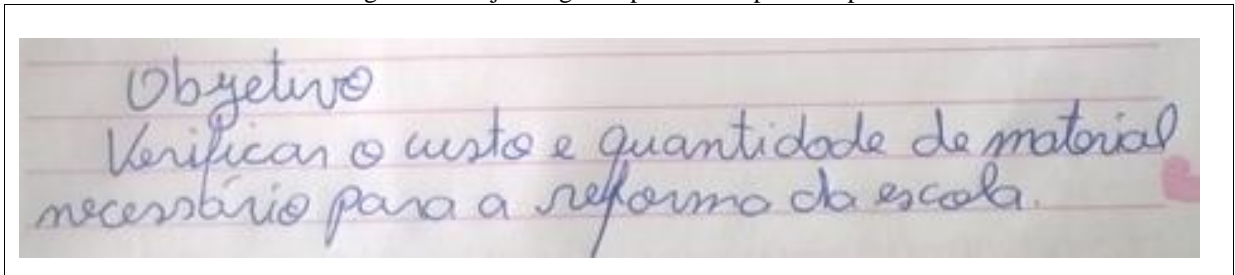 Objetivo
Verificar o custo e quantidade de material
necessário para a reforma da escola.